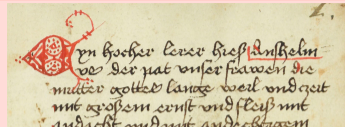 Eyn hocher lerer hieß Anshelm
9ͦ der pat vnser frawen die
mutter gottes lange weil vnd czeit
mit großem ernst vnd fleiß mit
andacht vnd mit andechtigem